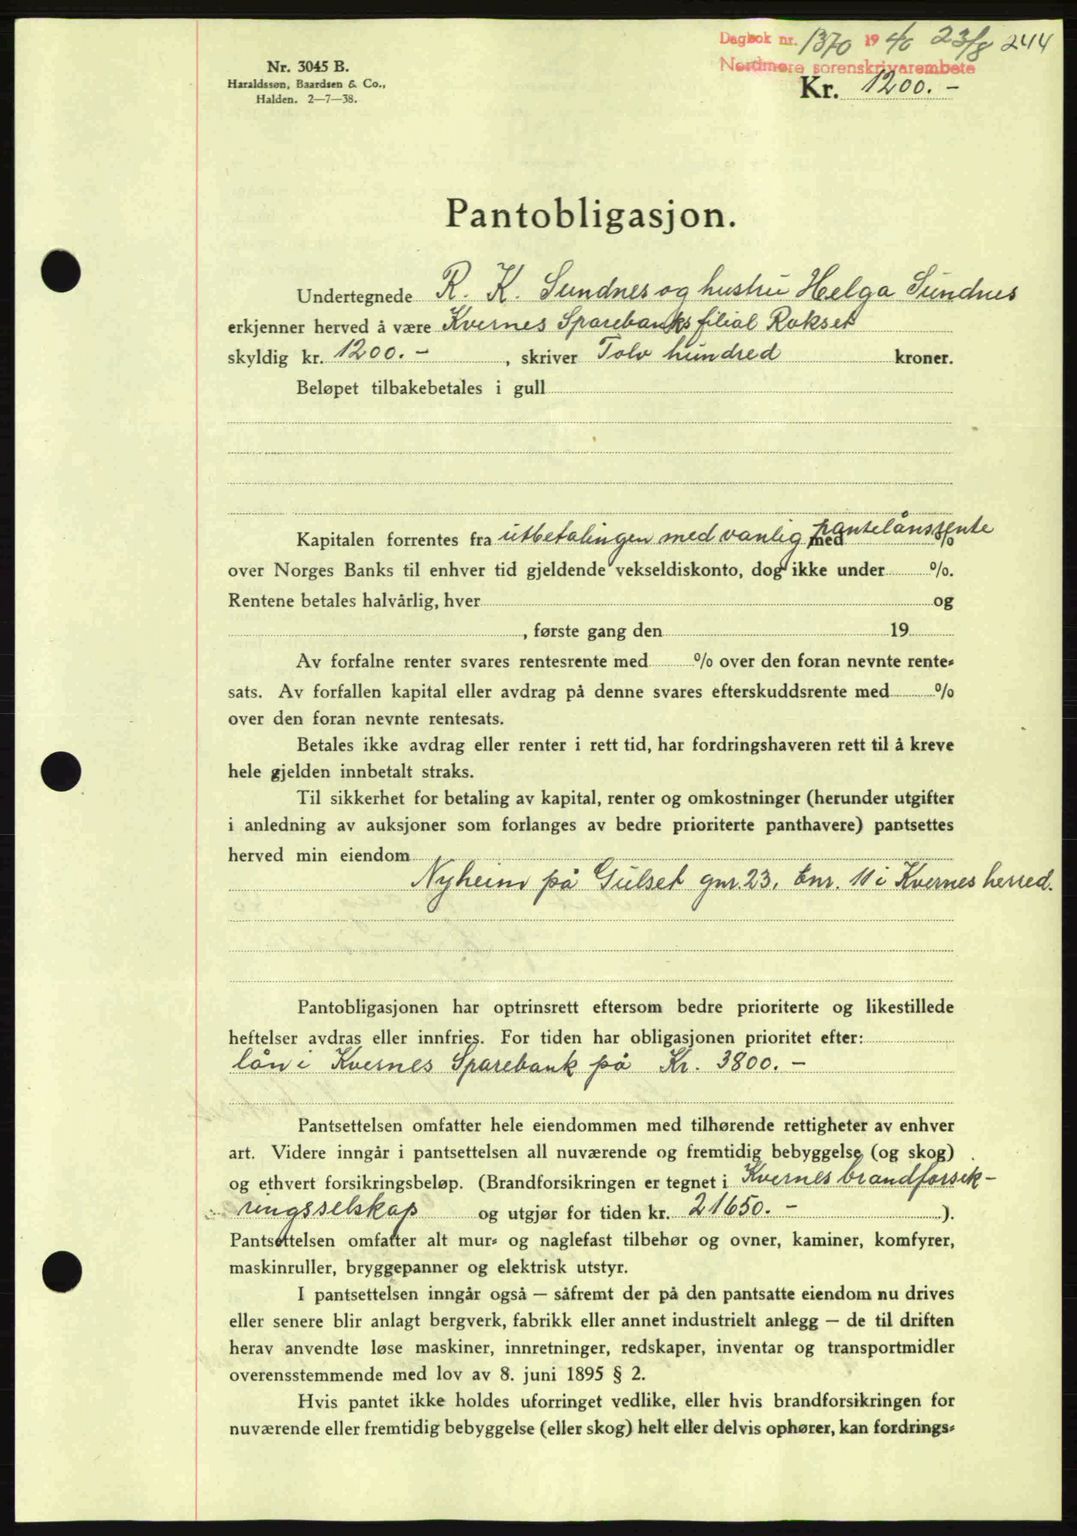 Dagbok nr. 1370 1940 23/8 244
Nordmøre sorenskrivarembete
Nr. 3045 B.
Haraldssøn, Baardsen & Co.,
Halden. 2—7—38.
Kr. 1200.-
Pantobligasjon.
Undertegnede R. K. Sundnes og hustru Helga Sundnes
erkjenner herved å være Kvernes Sparebanks filial Rokset
skyldig kr. 1200.- , skriver Tolv hundred kroner.
Beløpet tilbakebetales i gull
Kapitalen forrentes fra utbetalingen med vanlig med pantelånsrente %
over Norges Banks til enhver tid gjeldende vekseldiskonto, dog ikke under %.
Rentene betales halvårlig, hver og
, første gang den 19
Av forfalne renter svares rentesrente med % over den foran nevnte rente-
sats. Av forfallen kapital eller avdrag på denne svares efterskuddsrente med %
over den foran nevnte rentesats.
Betales ikke avdrag eller renter i rett tid, har fordringshaveren rett til å kreve
hele gjelden innbetalt straks.
Til sikkerhet for betaling av kapital, renter og omkostninger (herunder utgifter
i anledning av auksjoner som forlanges av bedre prioriterte panthavere) pantsettes
herved min eiendom
Nyheim på Gulset gnr. 23, bnr. 11 i Kvernes herred.
Pantobligasjonen har optrinsrett eftersom bedre prioriterte og likestillede
heftelser avdras eller innfries. For tiden har obligasjonen prioritet efter:
lån i Kvernes Sparebank på Kr. 3800.-
Pantsettelsen omfatter hele eiendommen med tilhørende rettigheter av enhver
art. Videre inngår i pantsettelsen all nuværende og fremtidig bebyggelse (og skog)
og ethvert forsikringsbeløp. (Brandforsikringen er tegnet i Kvernes brandforsik-
ringsselskap og utgjør for tiden kr. 21650.- ).
Pantsettelsen omfatter alt mur- og naglefast tilbehør og ovner, kaminer, komfyrer,
maskinruller, bryggepanner og elektrisk utstyr.
I pantsettelsen inngår også — såfremt der på den pantsatte eiendom nu drives
eller senere blir anlagt bergverk, fabrikk eller annet industrielt anlegg — de til driften
herav anvendte løse maskiner, innretninger, redskaper, inventar og transportmidler
overensstemmende med lov av 8. juni 1895 § 2.
Hvis pantet ikke holdes uforringet vedlike, eller hvis brandforsikringen for
nuværende eller fremtidig bebyggelse (eller skog) helt eller delvis ophører, kan fordrings-